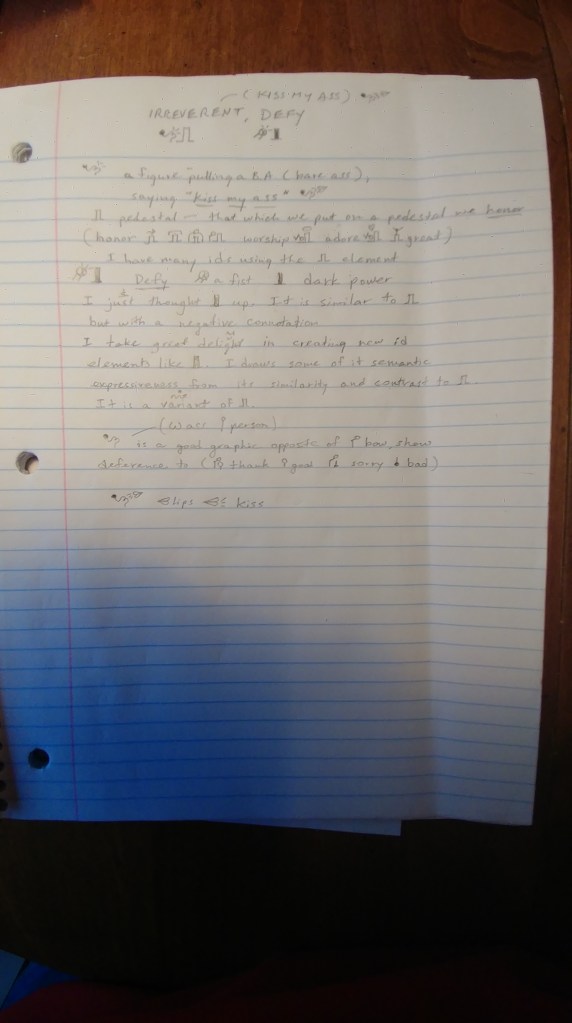 (KISS MY ASS)
IRREVERENT, DEFY
a figure "pulling a BA (bare ass),
saying "kiss my ass"
pedestal — that which we put on a pedestal we honor
(honor worship adore great)
I have many ids using the element
Defy a fist dark power
I just thought up. It is similar to
but with a negative connotation
I take great delight in creating new id
elements like . I draws some of it semantic
expressiveness from its similarity and contrast to .
It is a variant of .
(ω ass person)
is a good graphic opposite of bow, show
deference to ( thank good sorry bad)
lips kiss